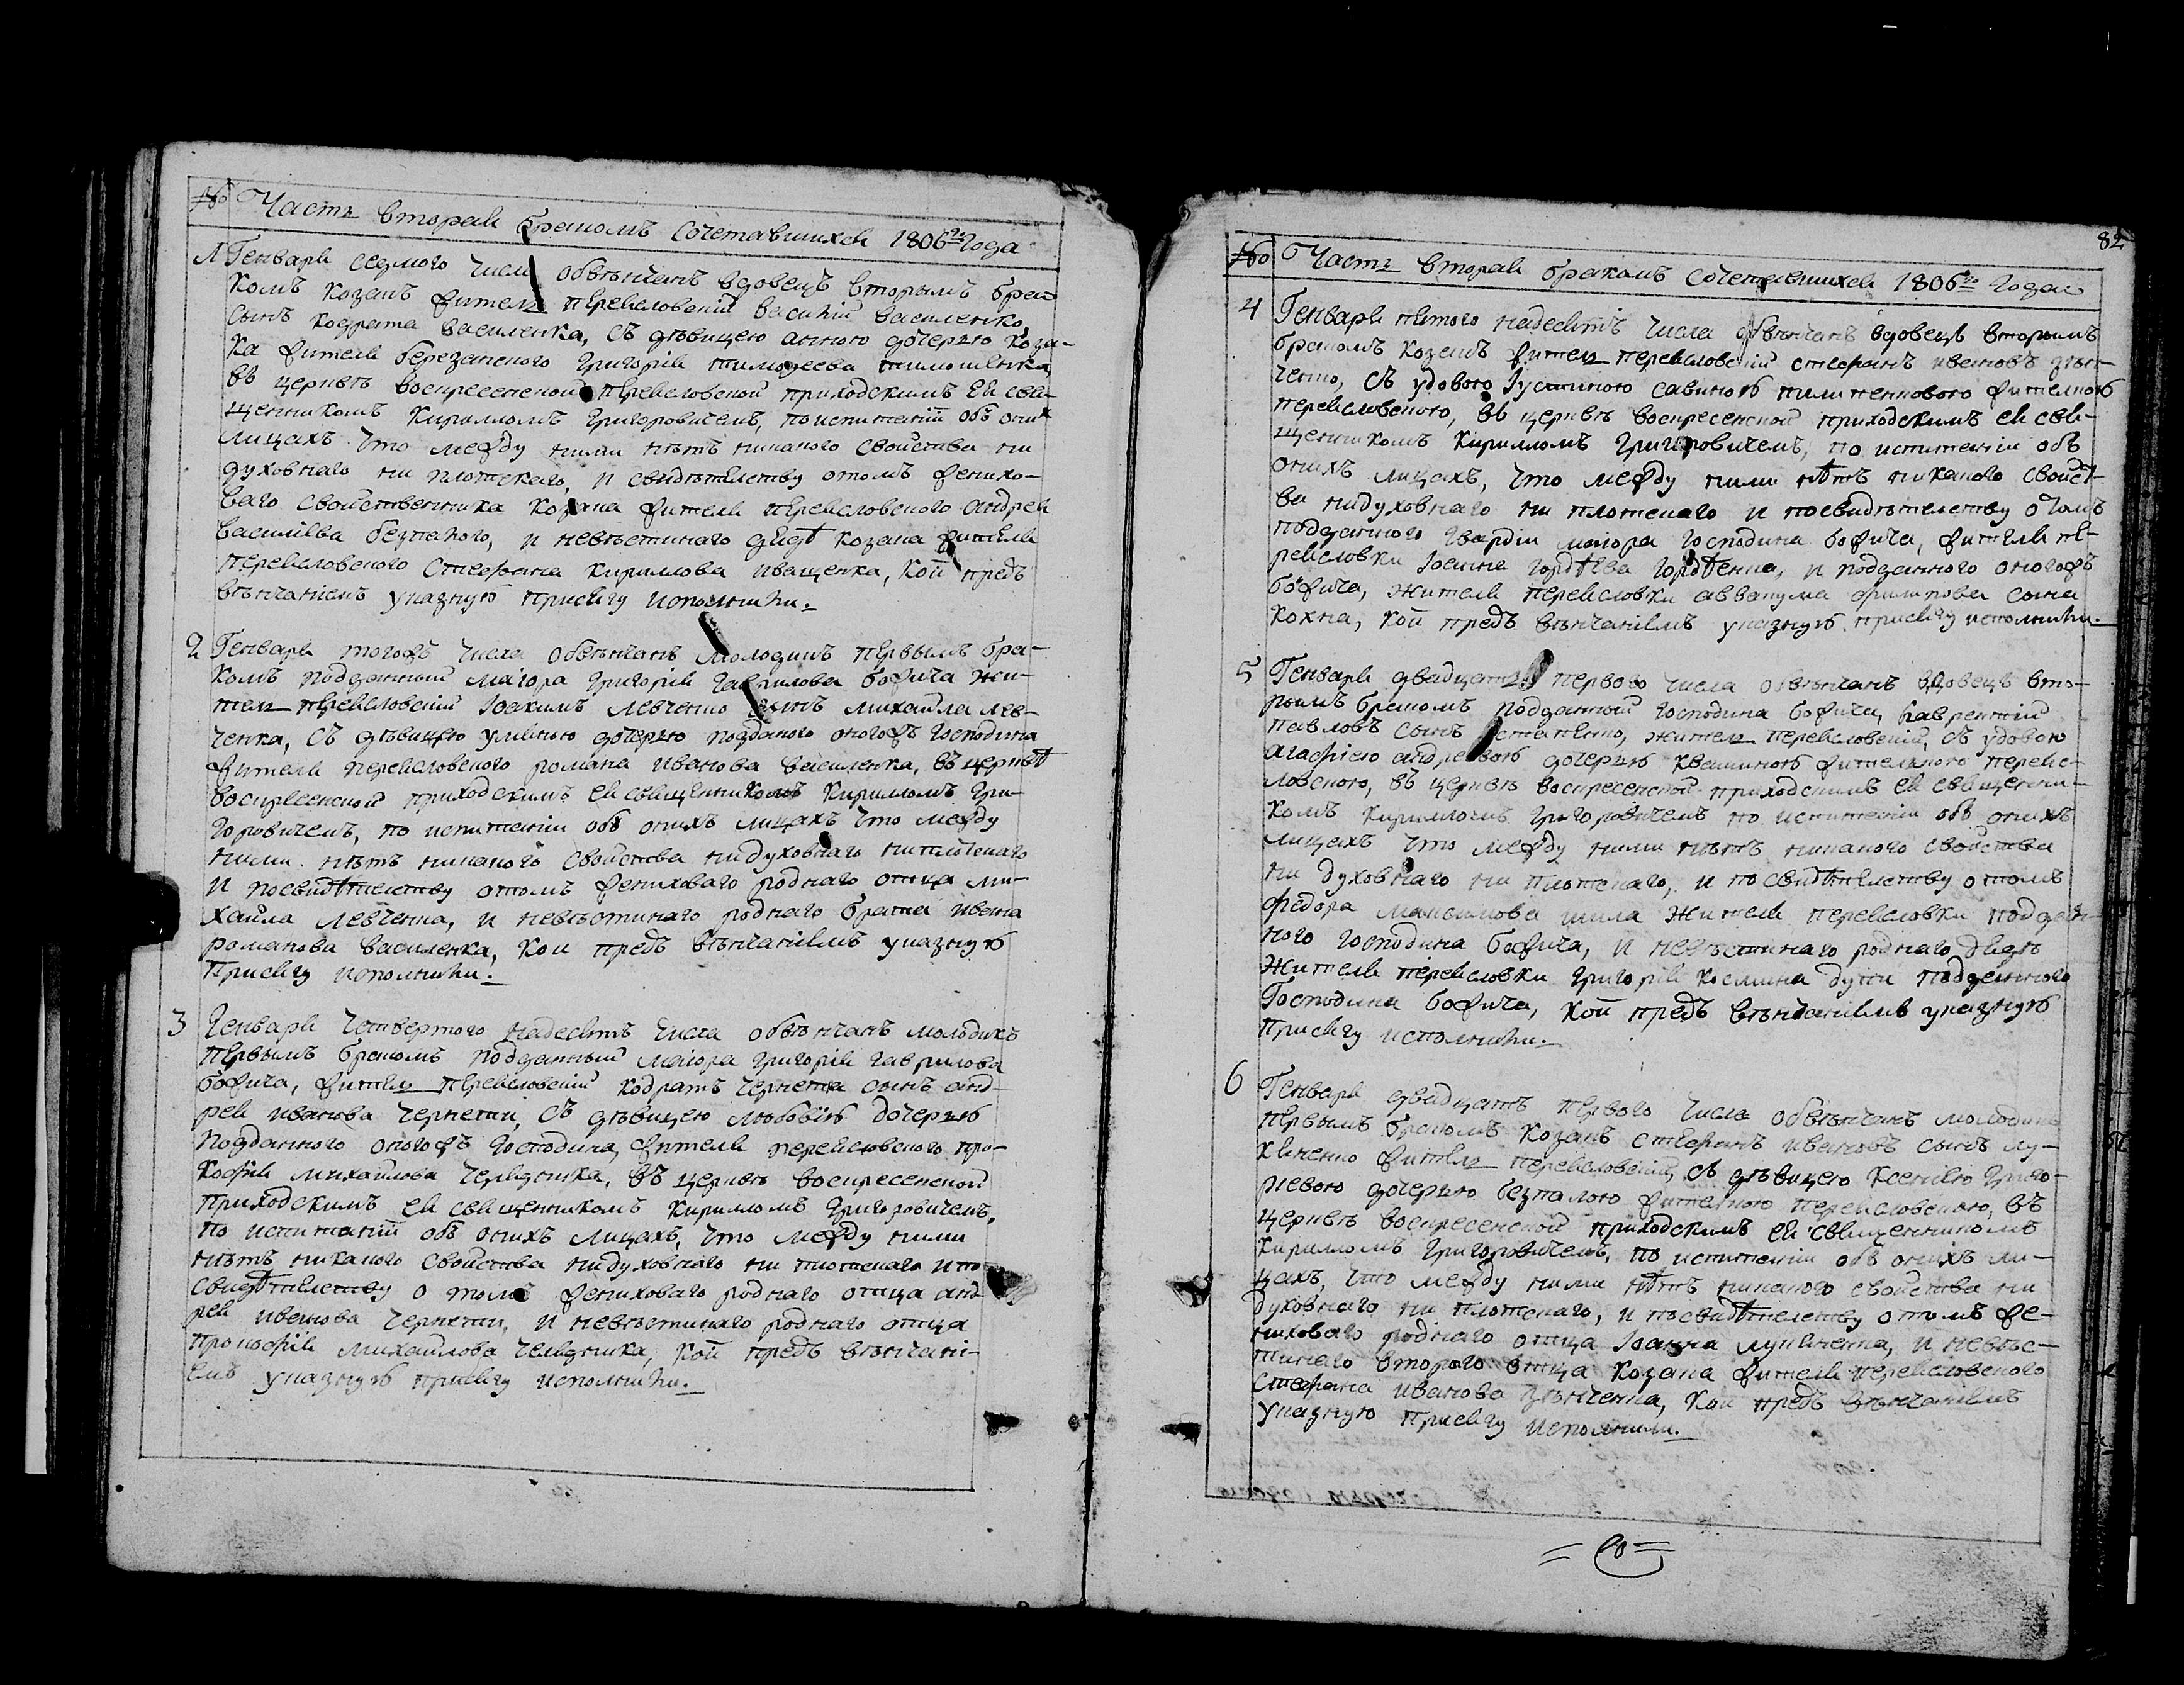 № Часть вторая бракомъ сочетавшихся 1806го года
1 Генваря седмого числа обвѣнчанъ вдовецъ вторымъ бра-
комъ козакъ житель переясловский василий василенко
сынъ кодрата василенка, съ дѣвицею анною дочерью коза-
ка жителя березанского григорія тимофеева тимошенка
въ церквѣ воскресенской переясловской приходскимъ ея свя-
щенникомъ кирилломъ григоровичемъ, по испитаній объ оних
лицахъ что между ними нѣтъ никакого свойства ни
духовнаго ни плотскаго, и свидѣтелству отомъ женихо-
ваго свойственника козака жителя переясловского андрея
василіева безпалого, и невѣстинаго дядѣ козака жителя
переясловского стефана кирилова иващенка, кой предъ
вѣнчаніемъ указную присягу исполнили.
2 Генваря тогожъ числа обвѣнчанъ молодикъ первымъ бра-
комъ подданный маіора григорія гаврилова божича жи-
тель переясловскій Іоакимъ левченко сынъ михаила лев-
ченка, съ дѣвицею уліяною дочерью поддного оногожъ господина
жителя переясловского романа иванова василенка, въ церквѣ
воскресенской приходскимъ ея священникомъ кирилломъ гри-
горовичемъ, по испитаніи объ онихъ лицахъ что между
ними нѣтъ никакого свойства нидуховнаго ниплотскаго
и посвидѣтелству отомъ женихового роднаго отца ми-
хайла левченка, и невѣстинаго роднаго брата ивана
романова василенка, кои предъ вѣнчаніемъ указную
присягу исполнили.
3 Генваря четвертого надесять числа обвѣнчанъ молодикъ
первымъ бракомъ подданный маіора григорія гаврилова
божича, житель переясловскій кодратъ чернета сынъ анд-
рея иванова чернети, съ дѣвицею любовію дочерью
подданного оногожъ господина, жителя переясловского про-
кофія михайлова челядника, въ церквѣ воскресенской
приходскимъ ея священникомъ кирилломъ григоровичемъ,
по испитаній объ онихъ лицахъ, что между ними
нѣтъ никакого свойства нидуховнаго ни плотскаго ипо
свидѣтелству о томъ жениховаго роднаго отца анд-
рея иванова чернети, и невѣстинаго роднаго отца
прокофія михайлова челядника, кой предъ вѣнчані-
емъ указную присягу исполнили.
82
№ Часть вторая бракомъ сочетавшихся 1806го года
4 Генваря пятого надесять числа обвѣнчанъ вдовецъ вторымъ
бракомъ козакъ житель переясловскій стефанъ ивановъ зѣн-
ченко, съ удовою Іустиною савиною пилипенковою жителкою
переясловскою, въ церквѣ воскресенской приходскимъ ея свя-
щенникомъ кирилломъ григоровичемъ, по испитаніи объ
онихъ лицахъ, что между ними нѣтъ никакого свойст-
ва нидуховнаго ни плотскаго и посвидѣтелству отомъ
подданного гвардіи маіора господина божича, жителя пе-
реясловки Іоанна гордѣева гордѣенка, и подданного оногожъ
божича, жителя переясловки аввакума филипова сына
кохна, кой предъ вѣнчаніемъ указную присягу исполнили.
5 Генваря двадцать первого числа обвѣнчанъ вдовецъ вто-
рымъ бракомъ подданный господина божича, лаврентій
павловъ сынъ житель переясловскій, съ удовою
агафіею андреевою дочерью квашиною жителкою переяс-
ловскою, въ церквѣ воскресенской приходскимъ ея священни-
комъ кирилломъ григоровичемъ по испитаніи объ онихъ
лицахъ что между ними нѣтъ никакого свойства
ни духовнаго ни плотскаго, и по свидѣтелству отомъ
федора максимова шила жителя переясловки поддан-
ного господина божича, и невѣстинаго роднаго дядѣ
жителя переясловки григорія космина дуки подданного
господина божича, кой предъ вѣнчаніемъ указную
присягу исполнили.
6 Генваря двадцать первого числа обвѣнчанъ молодикъ
первымъ бракомъ козакъ стефанъ ивановъ сынъ лу-
кяненко житель переясловскій, съ дѣвицею ксеніею григо-
риевою дочерью безпалою жителкою переясловскою, въ
церквѣ воскресенской приходскимъ ея священникомъ
кирилломъ григоровичемъ, по испитаніи объ онихъ ли-
цахъ, что между ними нѣтъ никакого свойства ни
духовнаго ни плотскаго, и посвидѣтелству отомъ же-
ниховаго роднаго отца Іоанна лукяненка, и невѣс-
тинаго второго отца козака жителя переясловского
стефана иванова зѣнченка, кой предъ вѣнчаніемъ
указную присягу исполнили.